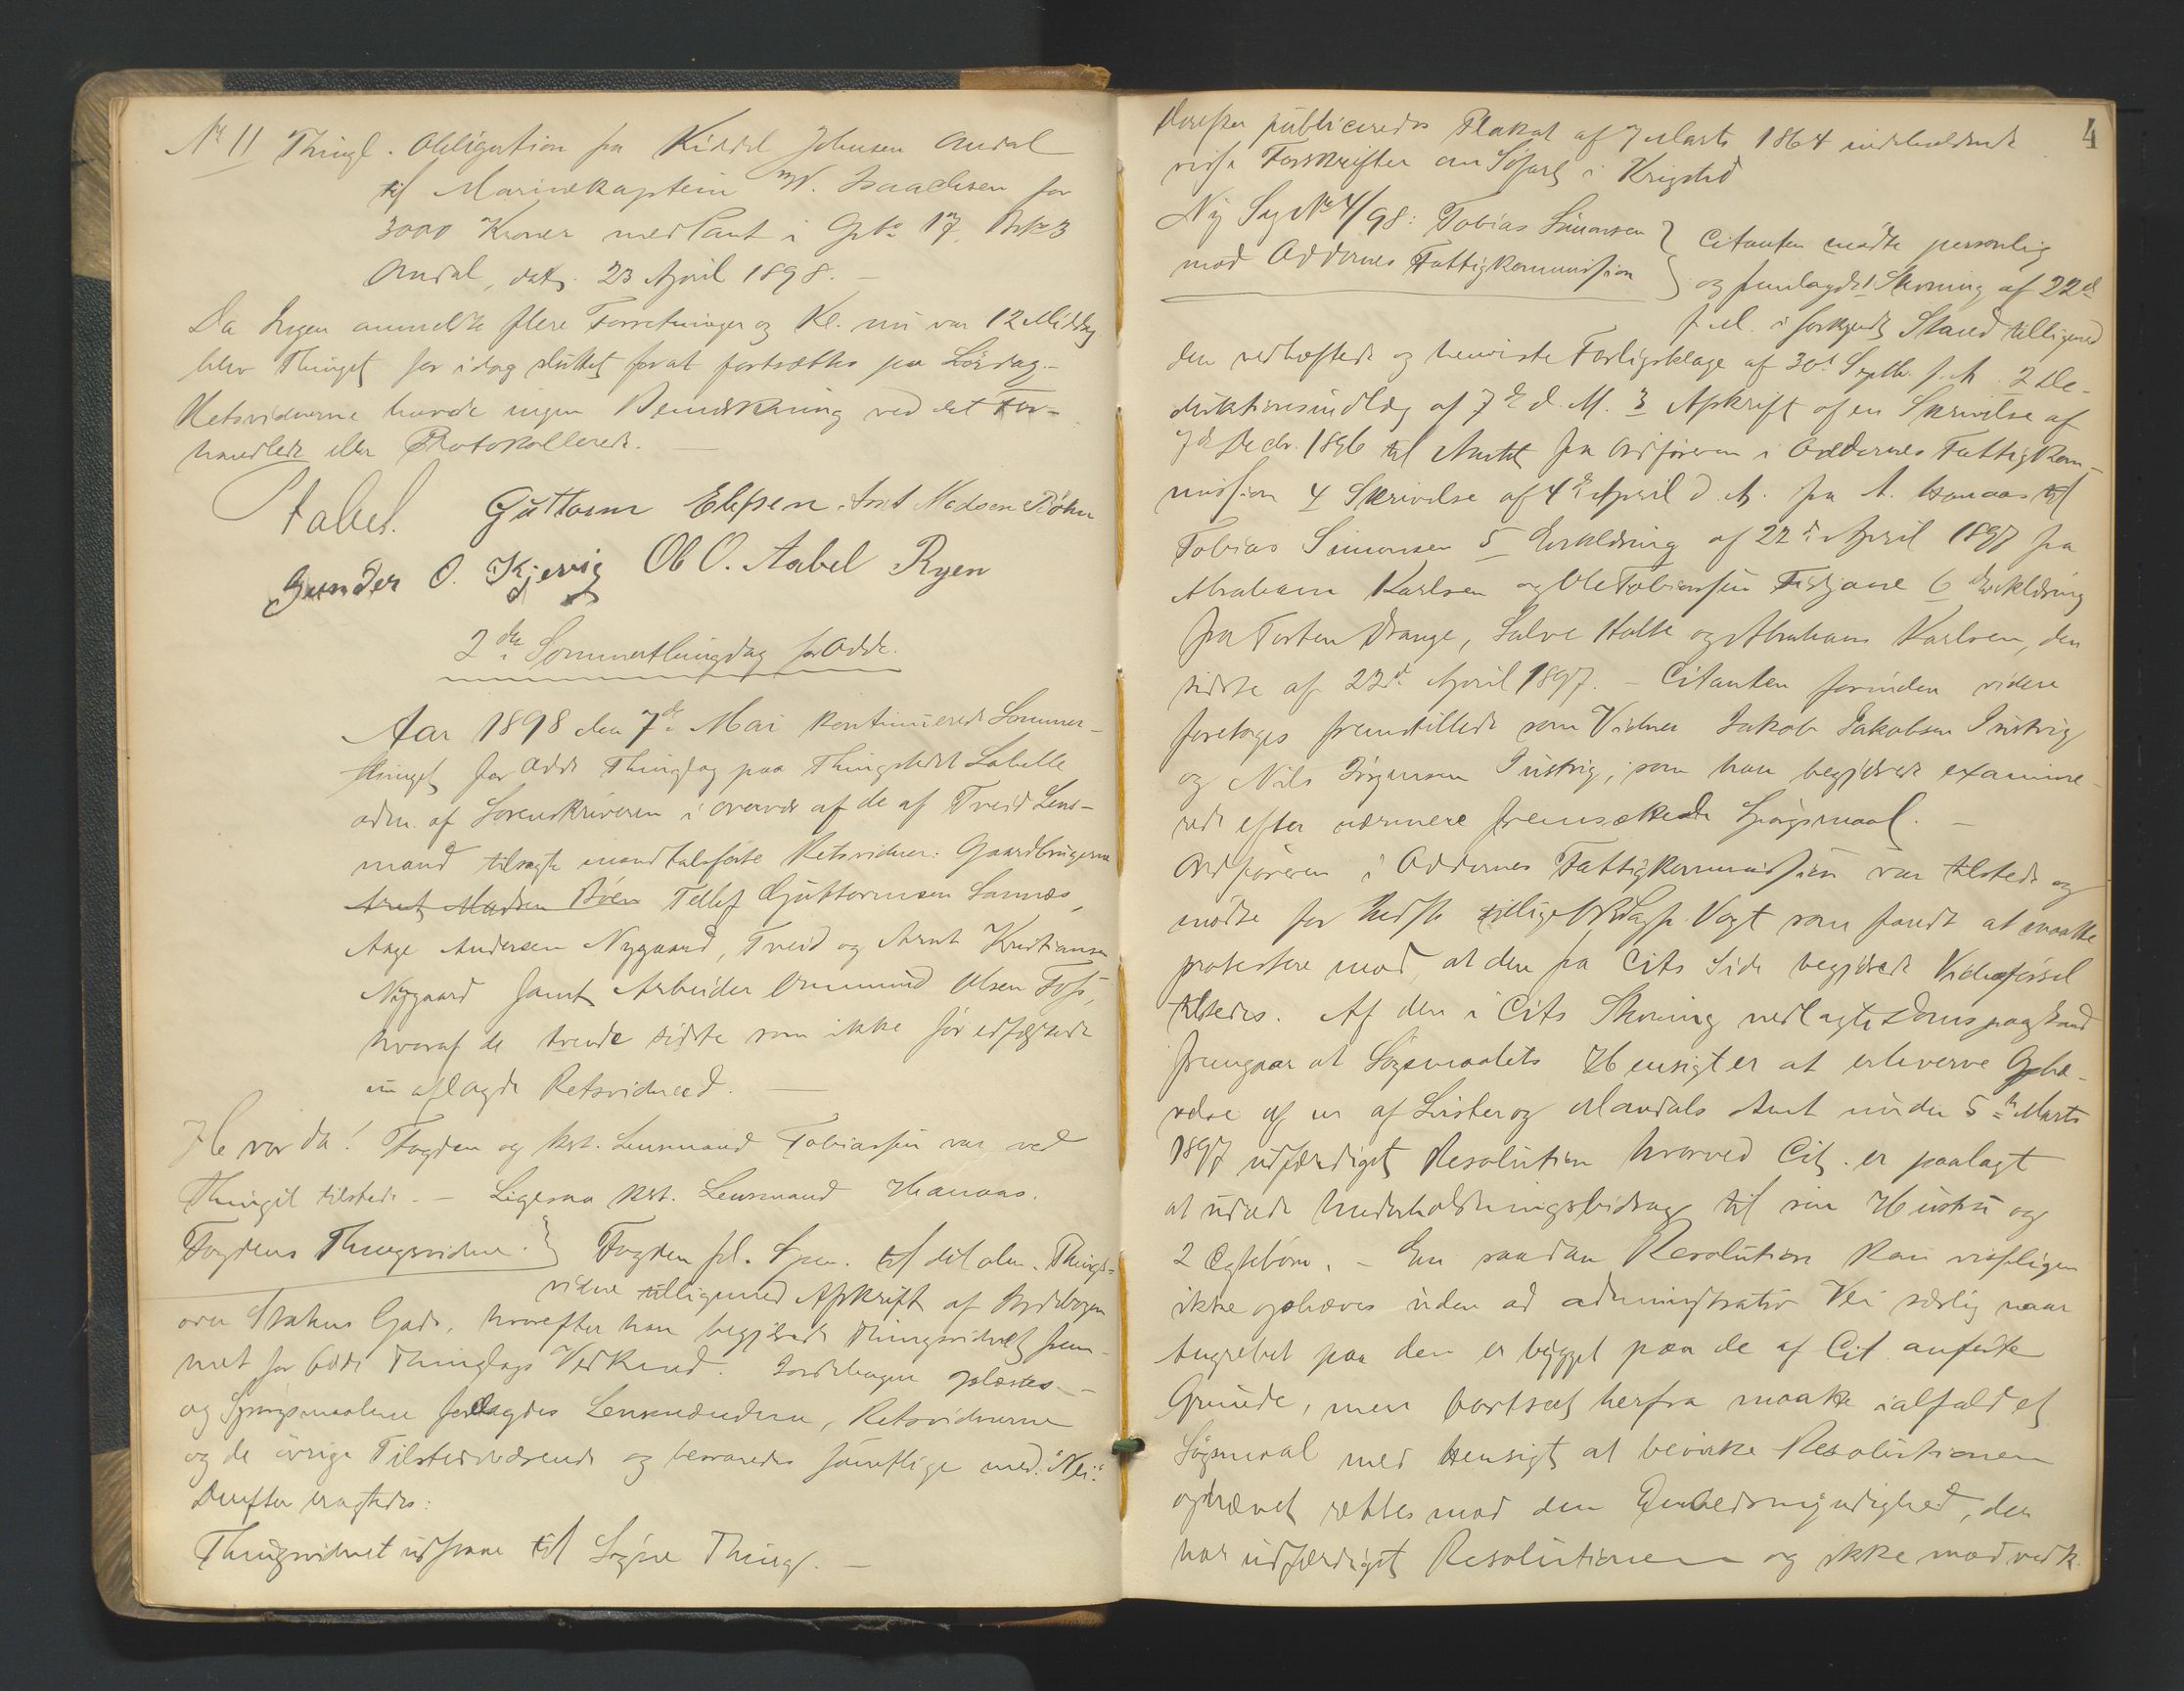 No 11 Thingl. Obligation fra Kiddel Johnsen Andal
til Marinekaptein W. Isaachsen for
3000 Kroner med Pant i Gno 17, Bno 3
Andal, dat. 23 April 1898. –
Da Ingen anmeldte flere Forretninger og Kl. nu var 12 Middag
blev Thinget for idag sluttet for at fortsættes paa Lördag. –
Retsvidnerne havde ingen Bemærkning ved det For-
handlede eller Protokollerede.
Stabel. Guttorm Elefsen Arnt Madsen Böhn
Gunder O. Kjevig Ol O. Aabel Ryen
2den Sommerthingdag for Odde.
Aar 1898 den 7de Mai kontinuerede Sommer-
thinget for Odde Thinglag paa Thingstedet
adm. af Sorenskriveren i overvær af de af Tveid Lens-
mand tilsagte mandtalsførte Retsvidner: Gaardbrugerne
Arnt Madsen Böen Tellef Guttormsen Sannæs,
Aage Andersen Nygaard, Tveid og Arnt Kristiansen
Nygaard samt Arbeider Ommund Olsen Foss,
hvoraf de trende sidste som ikke før edfæstede
nu aflagde Retsvidneed. –
Hvorda! Fogden og kst. Lensmand Tobiassen var ved
Thinget tilstede. – Ligesaa kst. Lensmand Hanaas.
Fogdens Thingsvidne. } Fogden fl. Spm. til det alm. Things-
vidne tilligemed Afskrift af Jordebogen
over Statens Gods, hvorefter han begjærede Thingsvidnet frem-
met for Odde Thinglags Vedkmd. Jordebogen oplæstes –
og Spörgsmaalene forelagdes Lensmændene, Retsvidnerne
og de övrige Tilstedeværende og besvaredes samtlige med: "Nei".
Derefter eragtedes:
Thingsvidnet udstaar til Søgne Thing. –
4
Derefter publiceredes Plakat af 7 Marts 1864 indeholdende
visse Forskrifter om Söfart i Krigstid
Ny Sag No 4/98: Tobias Simonsen } Citanten mödte personlig
mod Oddernes Fattigkommission } og fremlagde 1 Stevning af 22de
f. M. i forkyndt Stand tilligemed
den vedhæftede og henviste Forligsklage af 30te Septb. f. A. 2 De-
duktionsindlæg af 7de d. M. 3 Afskrift af en Skrivelse af
7de Decbr. 1896 til Amtet fra Ordföreren i Oddernes Fattigkom-
mission 4 Skrivelse af 4de April d. A. fra A. Hanaas til
Tobias Simonsen 5 Erklæring af 22de April 1897 fra
Abraham Karlsen og Ole Tobiassen 6 Erklæring
fra Torsten Drange, Salve Holte og Abraham Karlsen, den
sidste af 22de April 1897. – Citanten forinden videre
foretoges fremstillede som Vidner Jakob Jakobsen Justvig
og Nils Jörgensen Justvig, som han begjærede examine-
rede efter nærmere fremsættende Spörgsmaal. –
Ordföreren i Oddernes Fattigkommission var tilstede og
mödte for Indst. tillige Sagf. Vogt som fandt at maatte
protestere mod, at den fra Cits Side begjærede Vidneförsel
tilstedes. Af den i Cits Stevning nedlagte Domspaastand
fremgaar at Søgsmaalets Hensigt er at erhverve Ophæ-
velse af en af Lister og Mandals Amt under 5te Marts
1897 udfærdiget Resolution hvorved Cit. er paalagt
at udrede Underholdningsbidrag til sin Hustru og
2 Ægtebörn. – En saadan Resolution kan visseligen
ikke ophæves uden ad administrativ Vei særlig naar
Angrebet paa den er bygget paa de af Cit anførte
Grunde, men bortset herfra maatte ialfald et
Søgsmaal med Hensigt at bevirke Resolutionen
ophævet rettes mod den Embedsmyndighed, der
har udfærdiget Resolutionen og ikke mod vedk.